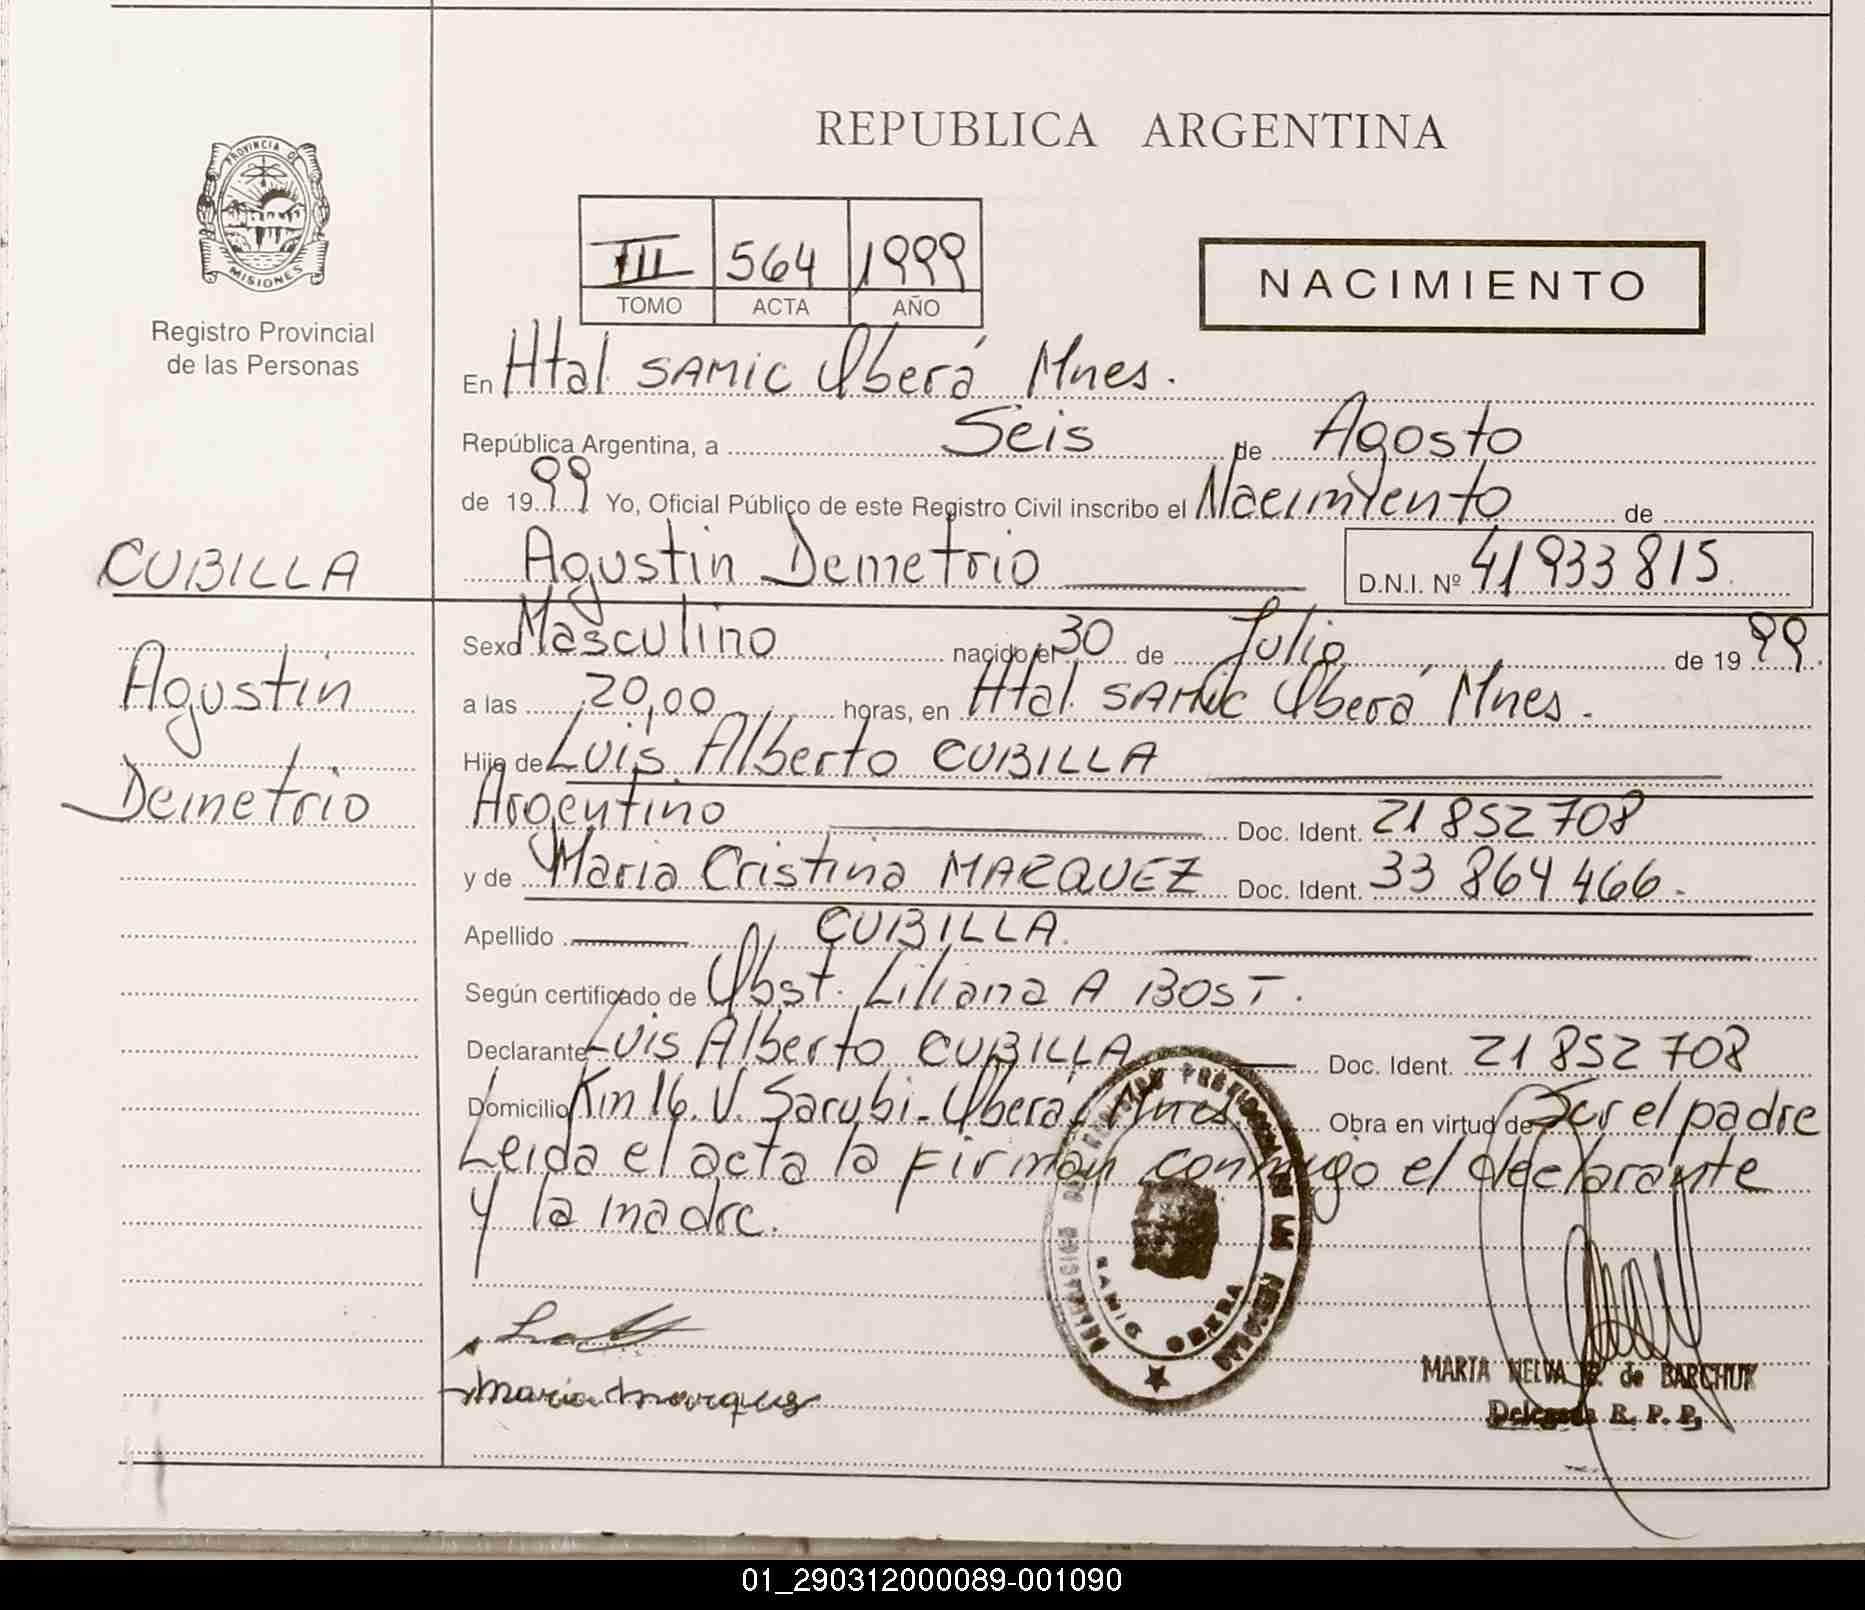 REPUBLICA ARGENTINA
PROVINCIA DE
MISIONES
Registro Provincial
de las Personas
III 564 1999
TOMO ACTA AÑO
NACIMIENTO
En Htal. SAMIC Oberá Mnes.
República Argentina, a Seis de Agosto
de 1999 Yo, Oficial Público de este Registro Civil inscribo el Nacimiento de
CUBILLA
Agustin Demetrio D.N.I. Nº 41933815
Agustin
Demetrio
Sexo Masculino nacido el 30 de Julio de 1999.
a las 20,00 horas, en Htal. SAMIC Oberá Mnes.
Hijo de Luis Alberto CUBILLA
Argentino Doc. Ident. 21 852 708
y de Maria Cristina MARQUEZ Doc. Ident. 33 864 466.
Apellido CUBILLA.
Según certificado de Obst. Liliana A BOST.
Declarante Luis Alberto CUBILLA Doc. Ident. 21 852 708
Domicilio Km 16. V. Sarubi - Oberá, Mnes. Obra en virtud de Ser el padre
Leida el acta la firman conmigo el declarante
y la madre.
SAMIC
OBERA
Maria Marques
MARTA NELVA de BARCHUK
Delegada R. P. P.
01_290312000089-001090